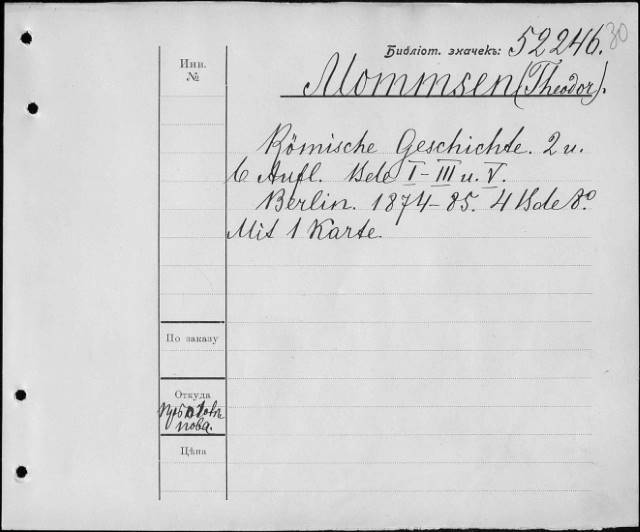 30
Библіот. значекъ: 52246.
Инв.
№
Mommsen (Theodor).
Römische Geschichte. 2 u.
6 Aufl. Bde I–III u. V.
Berlin. 1874–85. 4 Bde 8º
Mit 1 Karte.
По заказу
Откуда
нова.
Цѣна